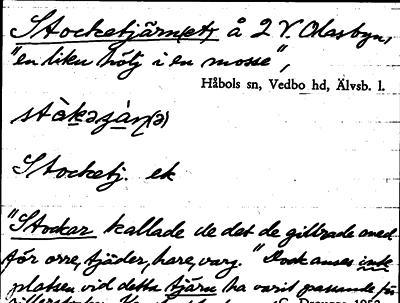 Stocketjärn(et) å 2 V. Olasbyn,
"en liten hölj i en mosse",
Håbols sn, Vedbo hd, Älvsb. l.
Stocketj. ek
"Stockar kallade de det de gillrade med
för orre, tjäder, hare, varg. "Dock anses inte
platsen vid detta tjärn ha varit passande för